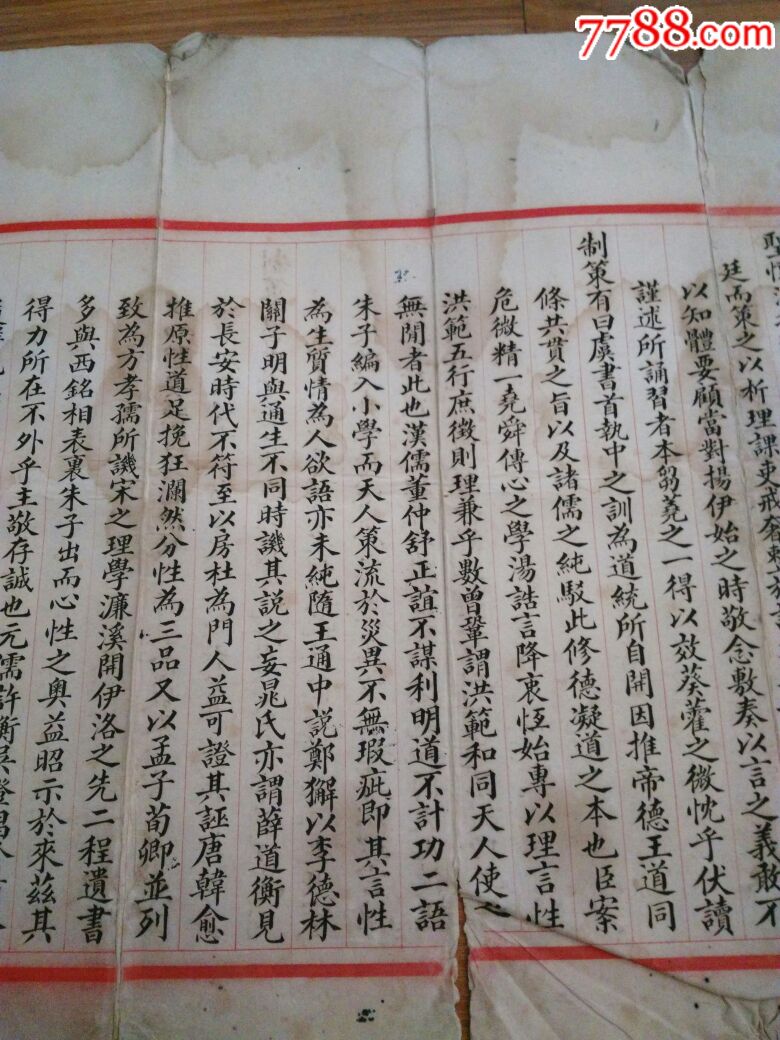 7788.com
廷而策之以析理課吏戒奢
以知體要顧當對揚伊始之時敬念敷奏以言之義敢不
謹述所誦習者本芻蕘之一得以效葵藿之微忱乎伏讀
制策有曰虞書首執中之訓為道統所自開因推帝德王道同
條共貫之旨以及諸儒之純駁此修德凝道之本也臣案
危微精一堯舜傳心之學湯誥言降衷恆始專以理言性
洪範五行庶徵則理兼乎數曾鞏謂洪範和同天人使
無閒者此也漢儒董仲舒正誼不謀利明道不計功二語
朱子編入小學而天人策流於災異不無瑕疵即其言性
為生質情為人欲語亦未純隨王通中說鄭獬以李德林
關子明與通生不同時譏其說之妄晁氏亦謂薛道衡見
於長安時代不符至以房杜為門人益可證其誣唐韓愈
推原性道足挽狂瀾然分性為三品又以孟子荀卿並列
致為方孝孺所譏宋之理學濂溪開伊洛之先二程遺書
多與西銘相表裏朱子出而心性之奧益昭示於來茲其
得力所在不外乎主敬存誠也元儒許衡吳澄